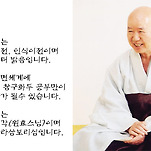 는
전, 인식이전이며
터 밝음입니다.
면세계에
창구화두 공부만이
가 될수 있습니다.
는
각(원효스님)이며
라삼보리심입니다.